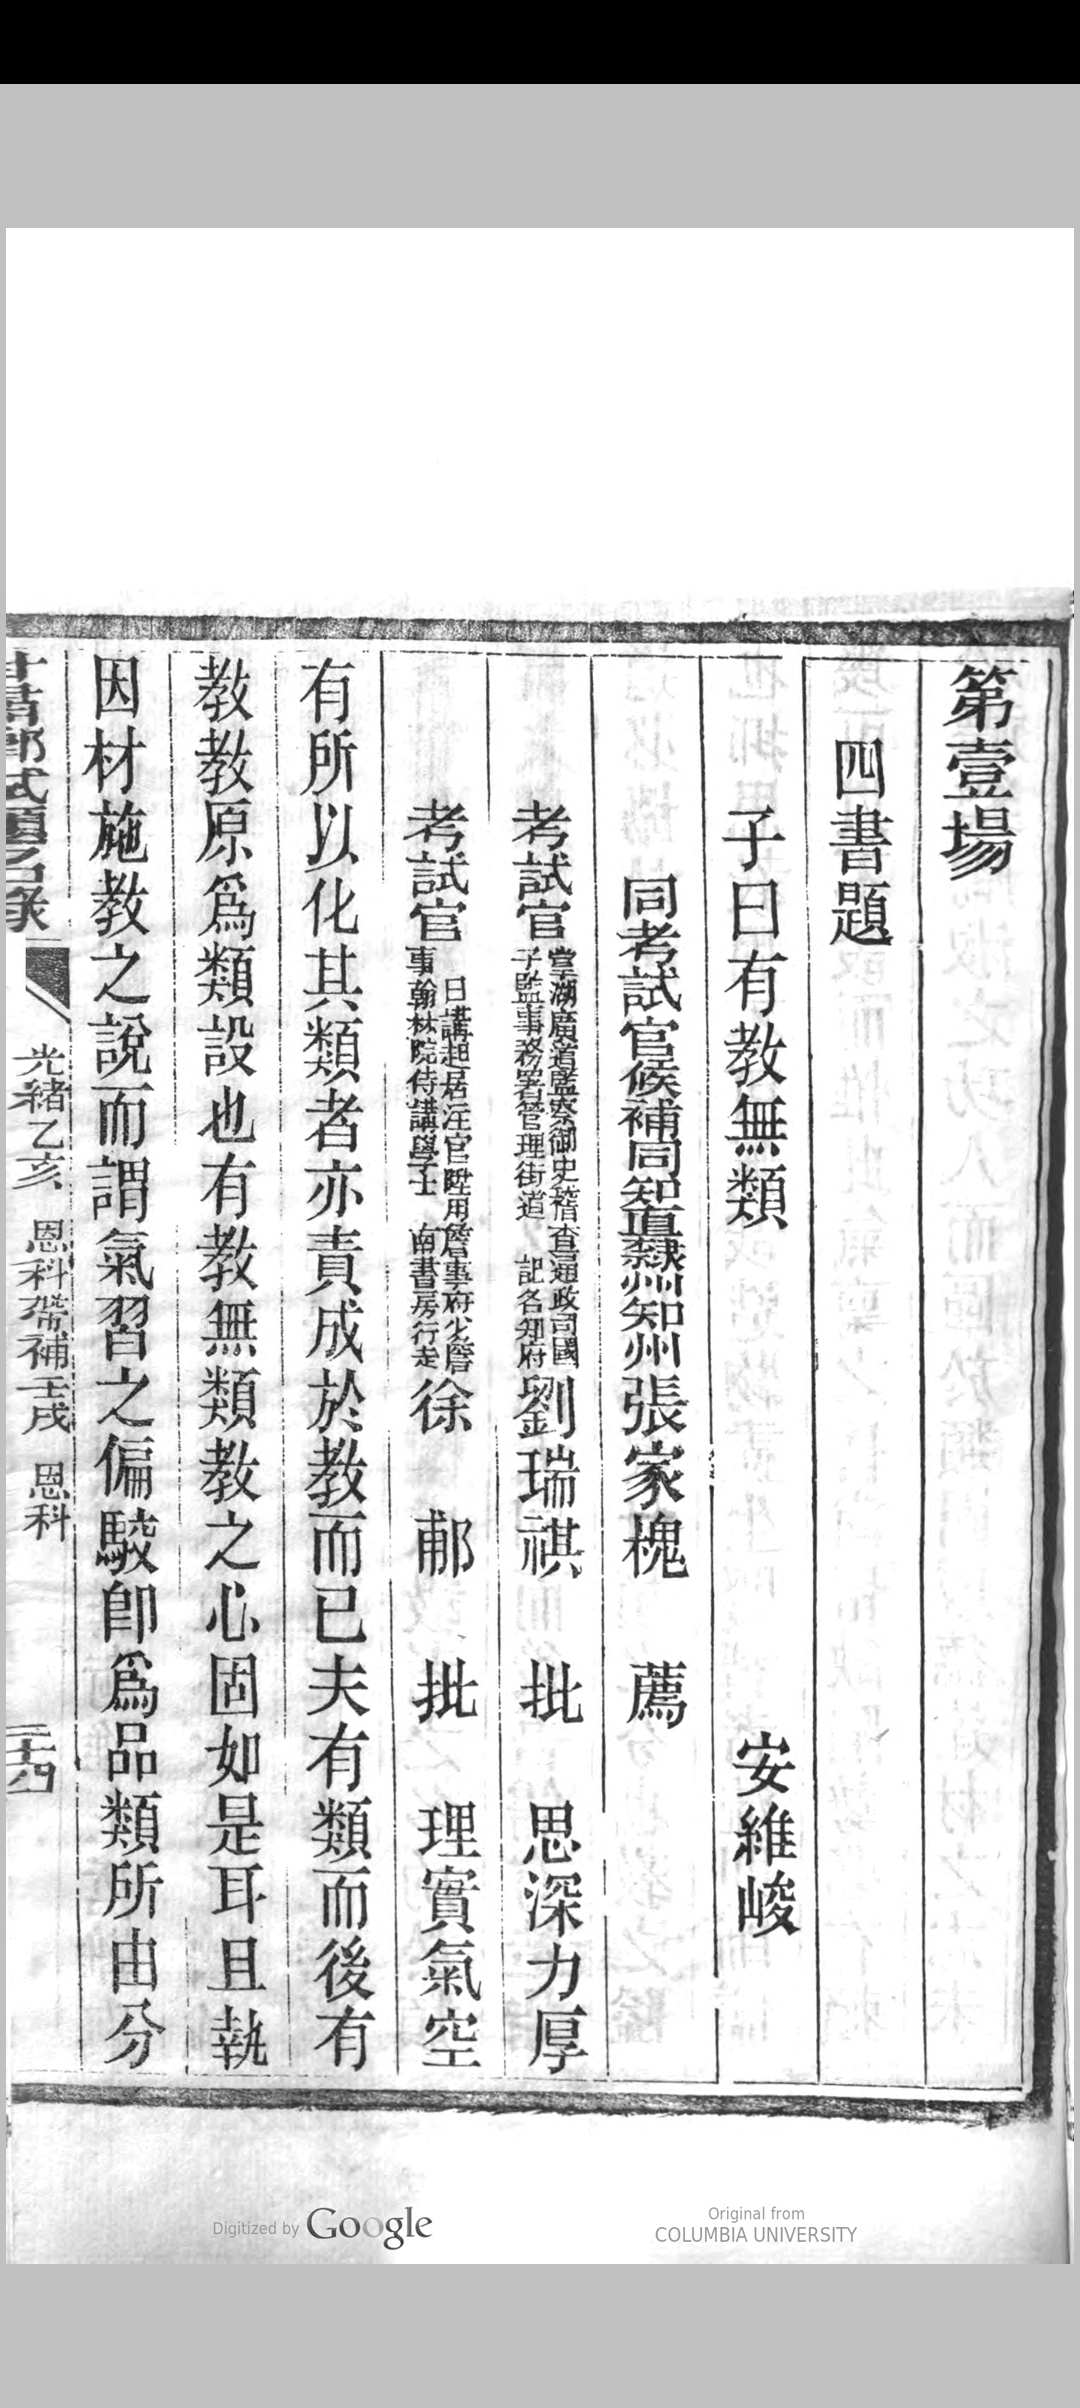 第壹場
四書題
子曰有教無類　安維峻
同考試官候補同知直隸州知州張家槐　薦
考試官掌湖廣道監察御史稽查通政司國子監事務署管理街道　記名知府劉瑞祺　批　思深力厚
考試官日講起居注官陞用詹事府少詹事翰林院侍講學士　南書房行走徐　郙　批　理實氣空
有所以化其類者亦責成於教而已夫有類而後有
教教原爲類設也有教無類教之心固如是耳且執
因材施教之說而謂氣習之偏駮卽爲品類所由分
甘肅鄉試題名錄　光緒乙亥　恩科帶補壬戌　恩科　三十四
Digitized by Google
Original from
COLUMBIA UNIVERSITY